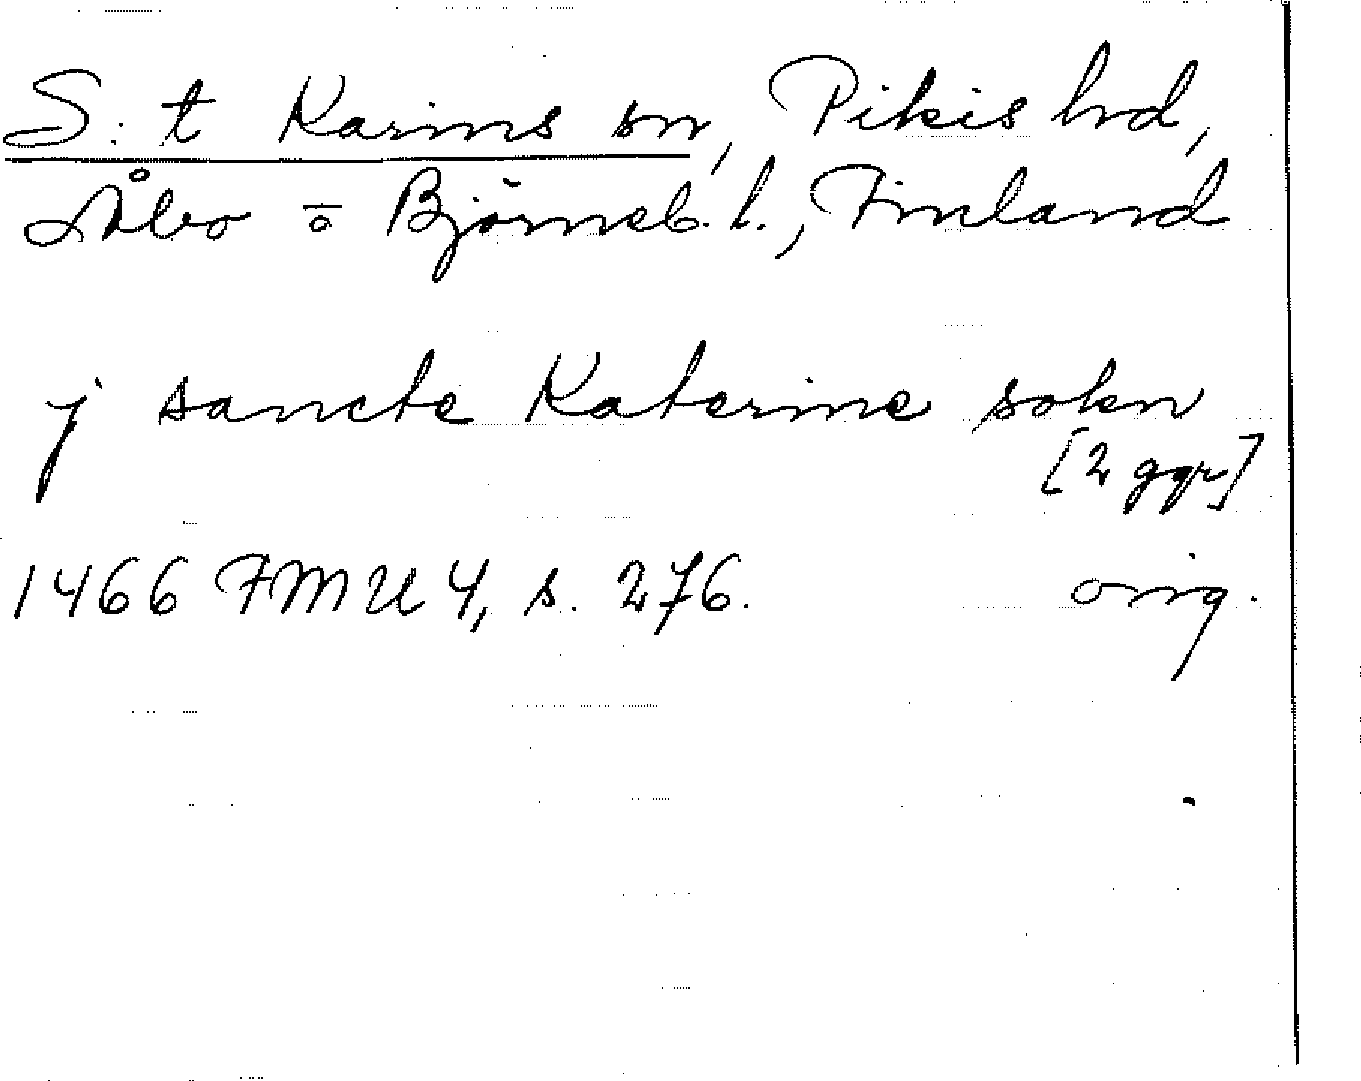 S:t Karins sn, Pikis hd,
Åbo o Björneb. l., Finland
j sancte Katerine sokn
[2 ggr]
1466 FMU 4, s. 276. orig.